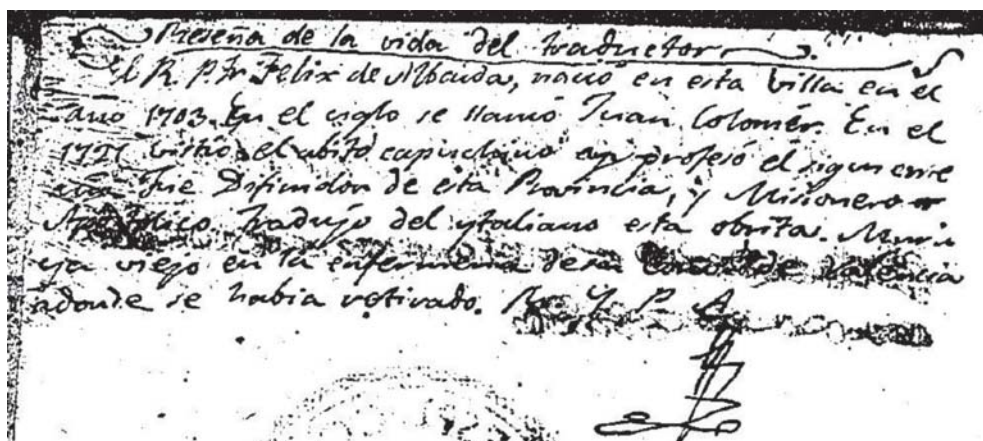 Reseña de la vida del traductor.
El R. P. Fr. Felix de Albaida, nació en esta villa en el
año 1703. En el siglo se llamó Juan Colomér. En el
1727 vistió el abito capuchino y profesó el siguiente
año fue Difinidor de esta Provincia, y Misionero
Apostolico tradujo del ytaliano esta obrita. Murió
ya viejo en la enfermeria de su Convto de Valencia
adonde se habia retirado. R. Y. P. A.